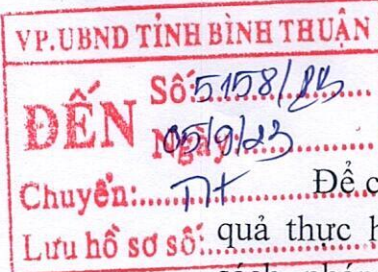 VP.UBND TỈNH BÌNH THUẬN
ĐẾN
Số: 5158/
Ngày: 05/9/23
Chuyển:
Để c
Lưu hồ sơ số:
quả thực h